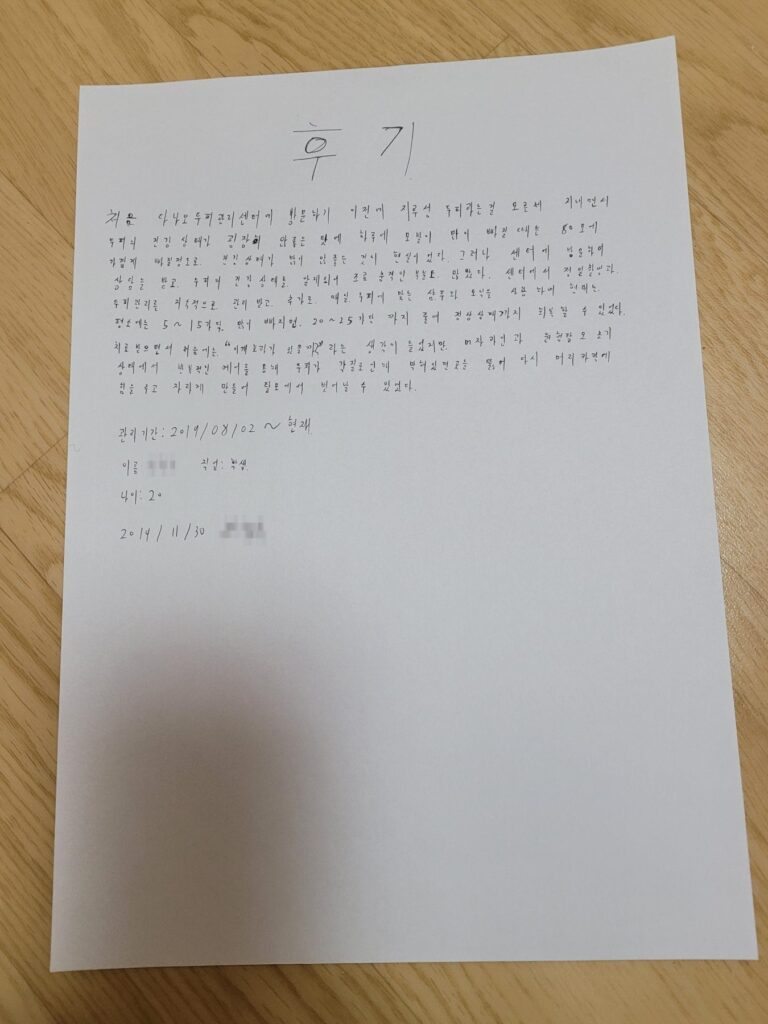 후 기
처음 다닐모두피관리센터에 방문하기 이전에 지루성 두피라는걸 모른채 지내면서
두피의 건강 상태가 굉장히 안좋은 탓에 하루에 모발이 많이 빠질 때는 80모에
가깝게 빠질정도로. 건강상태가 많이 안좋은 것이 현실이었다. 그러나 센터에 방문하여
상담을 받고. 두피의 건강상태를. 알게되어 조금 충격인 부분도. 많았다. 센터에서 정밀한
두피관리를 지속적으로 관리 받고. 추가로. 매일 두피에 맞는 샴푸와 토닉을 사용 하여 현재는.
평소에는 5~15가닥. 많이 빠지면. 20~25가닥 까지 줄어 정상상태까지 회복 할 수 있었다.
치료 받으면서 처음에는. "이게효과가 있을까?"라는 생각이 들었지만. m자라인과 원형탈모 초기
상태에서 케어를 통해 두피가 각질로인해 막혀있던곳을 뚫어 다시 머리카락에
힘을 주고 자라게 만들어 탈모에서 벗어날 수 있었다.
관리기간: 2019/08/02 ~ 현재
이름 직업: 학생
나이: 20
2014/11/30